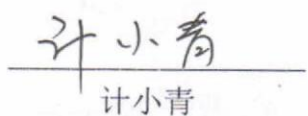 计小青
计小青